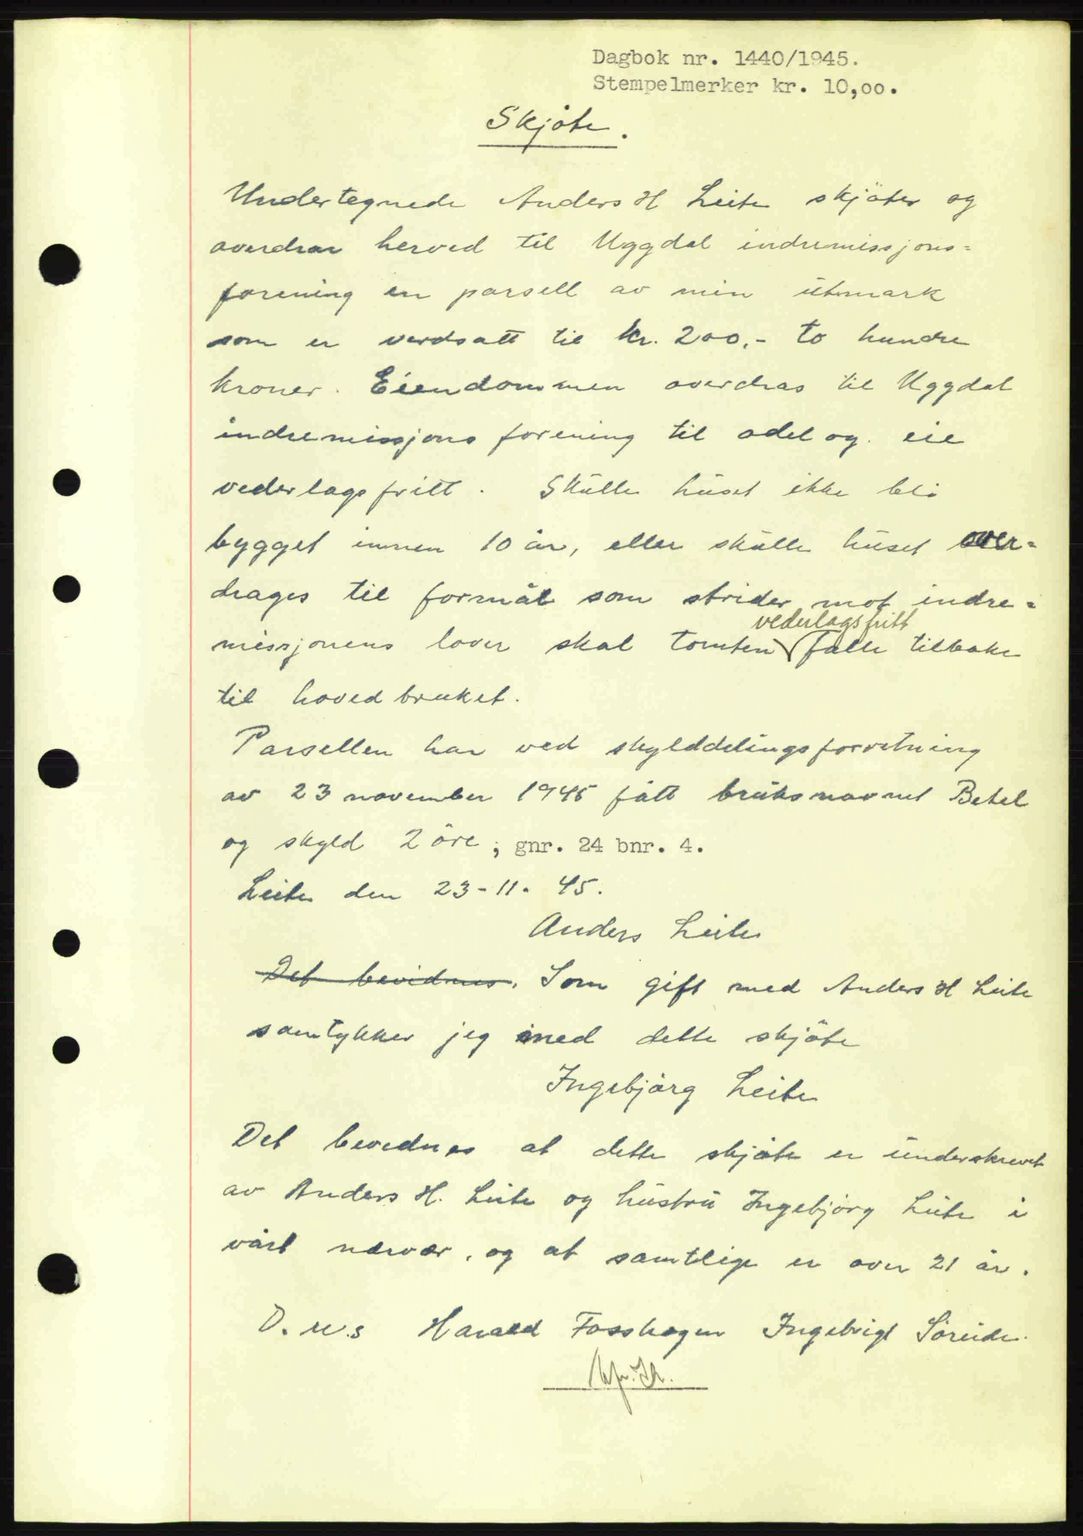 Dagbok nr. 1440/1945.
Stempelmerker kr. 10,00.
Skjøte.
Undertegnede Anders H Leite skjøter og
overdrar herved til Uggdal indremissjons=
forening en parsell av min utmark
som er verdsatt til kr. 200.- to hundre
kroner. Eiendommen overdras til Uggdal
indremissjons forening til odel og eie
vederlagsfritt. Skulle huset ikke bli
bygget innen 10 år, eller skulle huset over=
drages til formål som strider mot indre=
vederlagsfritt
missjonens lover skal tomten falle tilbake
til hovedbruket.
Parsellen har ved skylddelingsforretning
av 23 november 1945 fått bruksnavnet Betel
og skyld 2 øre ; gnr. 24 bnr. 4.
Leite den 23-11-45.
Anders Leite
Det bevidnes. Som gift med Anders H Leite
samtykker jeg med dette skjøte
Ingebjørg Leite
Det bevidnes at dette skjøte er underskrevet
av Anders H. Leite og hustru Ingebjørg Leite i
vårt nærvær, og at samtlige er over 21 år.
D. u. s Harald Fosshagen Ingebrigt Søreide.